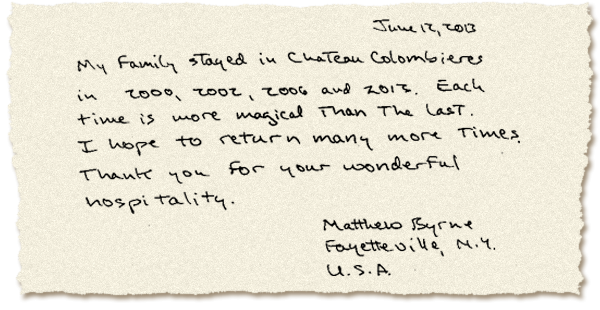 June 12, 2013
My Family stayed in Chateau Colombieres
in 2000, 2002, 2006 and 2013. Each
time is more magical Than The Last.
I hope to return many more Times.
Thank you for your wonderful
hospitality.
Matthew Byrne
Fayetteville, N.Y.
U.S.A.